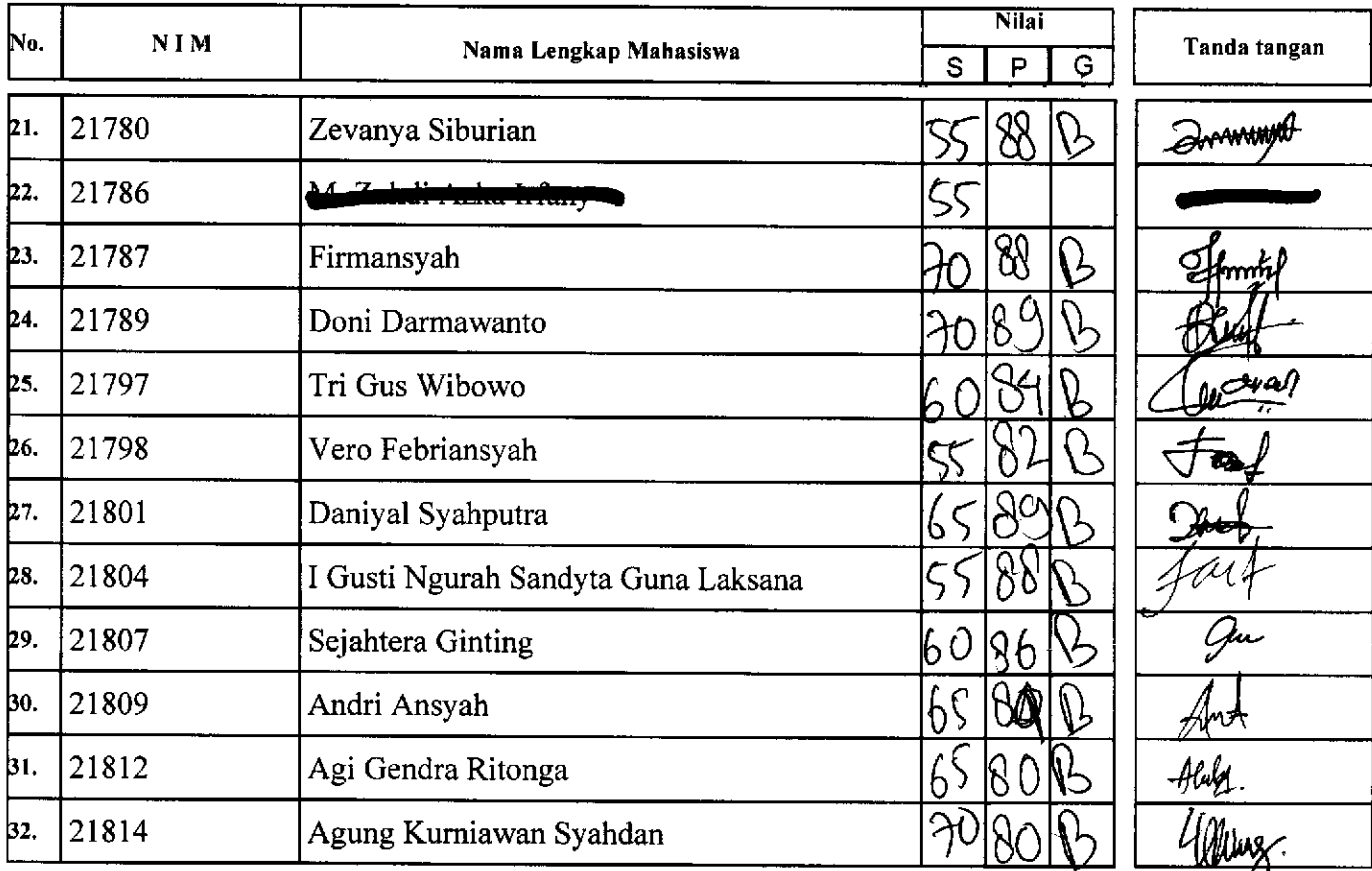 No. NIM Nama Lengkap Mahasiswa Nilai Tanda tangan
S P G
21. 21780 Zevanya Siburian 55 88 B
22. 21786 55
23. 21787 Firmansyah 70 88 B
24. 21789 Doni Darmawanto 70 89 B
25. 21797 Tri Gus Wibowo 60 84 B
26. 21798 Vero Febriansyah 55 82 B
27. 21801 Daniyal Syahputra 65 89 B
28. 21804 I Gusti Ngurah Sandyta Guna Laksana 55 88 B
29. 21807 Sejahtera Ginting 60 86 B
30. 21809 Andri Ansyah 65 B
31. 21812 Agi Gendra Ritonga 65 80 B
32. 21814 Agung Kurniawan Syahdan 70 80 B